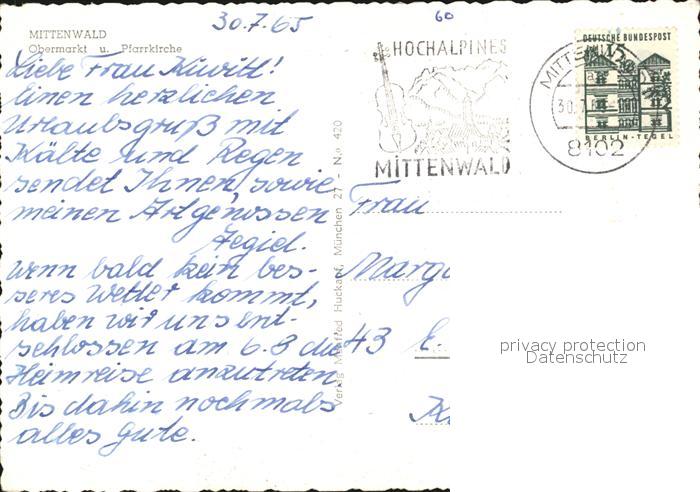 30.7.65
60
MITTENWALD
Obermarkt u. Pfarrkirche
Liebe Frau Kiwitt!
Einen herzlichen
Urlaubsgruß mit
Kälte und Regen
sendet Ihnen, sowie
meinen Artgenossen
Wenn bald kein bes-
seres Wetter kommt,
haben wir uns ent-
schlossen am 6.8 die
Heimreise anzutreten.
Bis dahin nochmals
alles Gute.
Verlag Manfred Huckauf, München 27 - No. 420
HOCHALPINES
MITTENWALD
30.7.
8102
DEUTSCHE BUNDESPOST
15
BERLIN-TEGEL
Frau
43 E.
privacy protection
Datenschutz